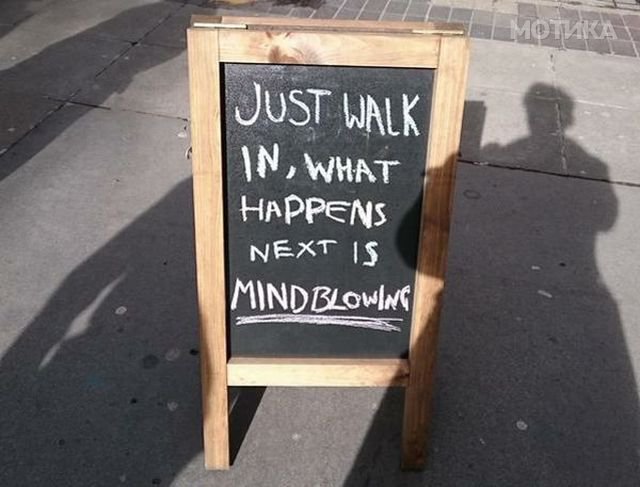 МОТИКА
JUST WALK
IN, WHAT
HAPPENS
NEXT IS
MINDBLOWING